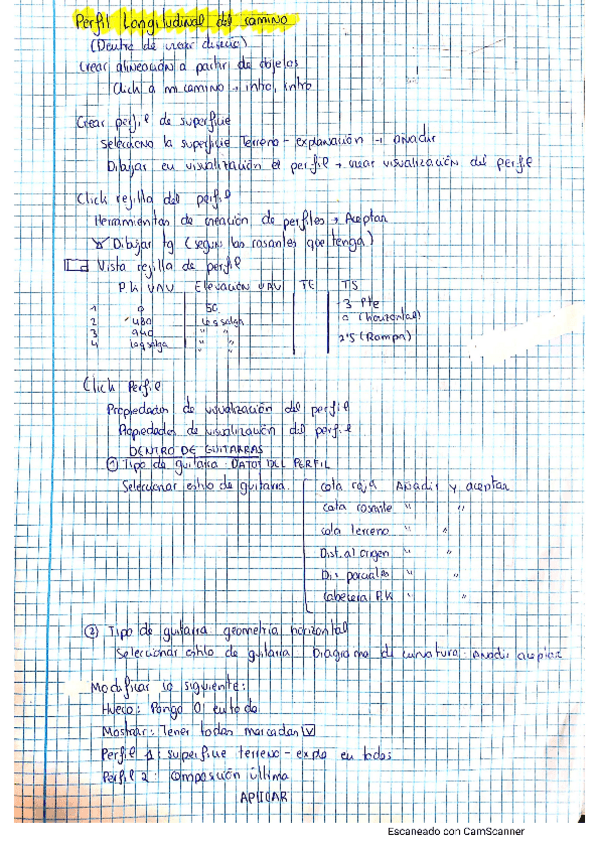 Perfil Longitudinal del camino
(Dentro de crear diseño)
Crear alineación a partir de objetos
Click a mi camino → intro, intro
Crear perfil de superficie
Selecciono la superficie Terreno - explanación → añadir
Dibujar en visualización el perfil → crear visualización del perfil
Click rejilla del perfil
Herramientas de creación de perfiles → Aceptar
Dibujar tg (según las rasantes que tenga)
Vista rejilla de perfil
P.K VAV Elevación VAV TE TS
1 0 50 3 Pte
2 480 lo q salga 0 (horizontal)
3 " " 2'5 (Rampa)
4 lo q salga " "
Click Perfil
Propiedades de visualización del perfil
Propiedades de visualización del perfil
DENTRO DE GUITARRAS
① Tipo de guitarra: DATOS DEL PERFIL
Seleccionar estilo de guitarra. cota roja Añadir y aceptar
cota rasante " "
cota terreno " "
Dist. al origen " "
Dis parciales " "
Cabecera P.K " "
② Tipo de guitarra geometría horizontal
Seleccionar estilo de guitarra Diagrama d curvatura: Añadir aceptar
Modificar lo siguiente:
Hueco: Pongo 01 en todo
Mostrar: Tener todas marcadas
Perfil 1: superficie terreno - expla en todos
Perfil 2: Composición última
APLICAR
Escaneado con CamScanner